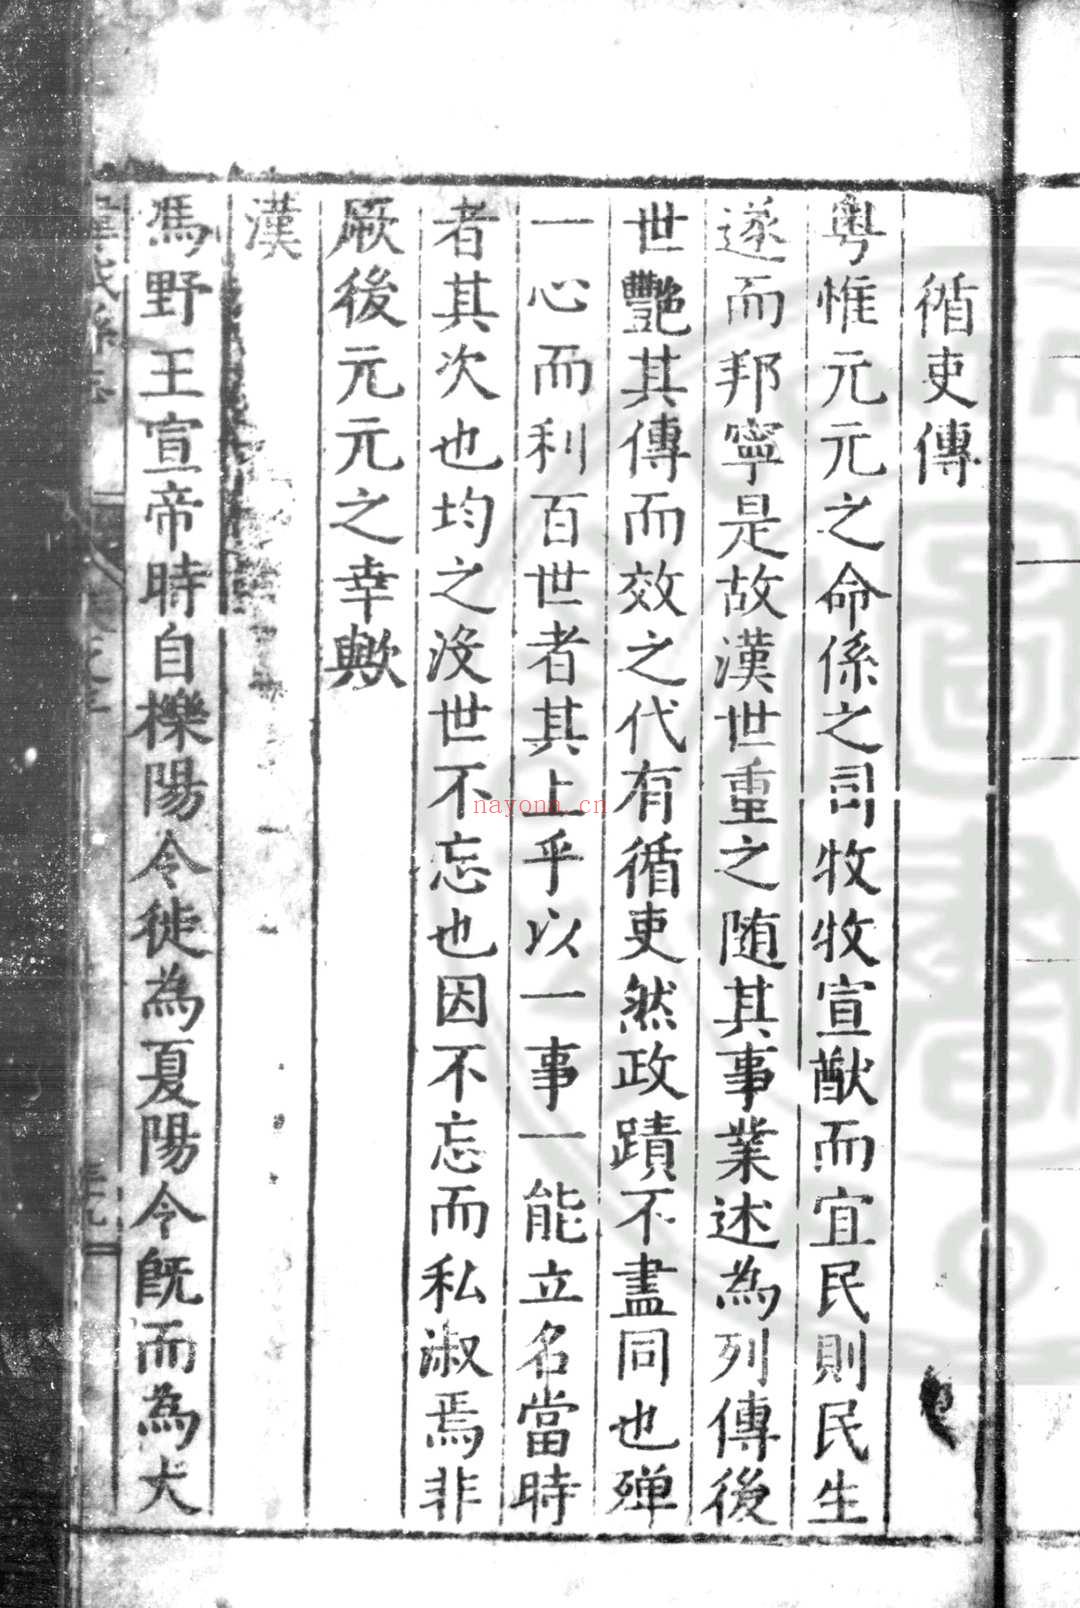 循吏傳
粤惟元元之命係之司牧牧宣猷而宜民則民生
遂而邦寧是故漢世重之随其事業述為列傳後
世艷其傳而效之代有循吏然政蹟不盡同也殫
一心而利百世者其上乎以一事一能立名當時
者其次也均之没世不忘也因不忘而私淑焉非
厥後元元之幸歟
漢
馮野王宣帝時自櫟陽令徙為夏陽令既而為大
nayona.cn